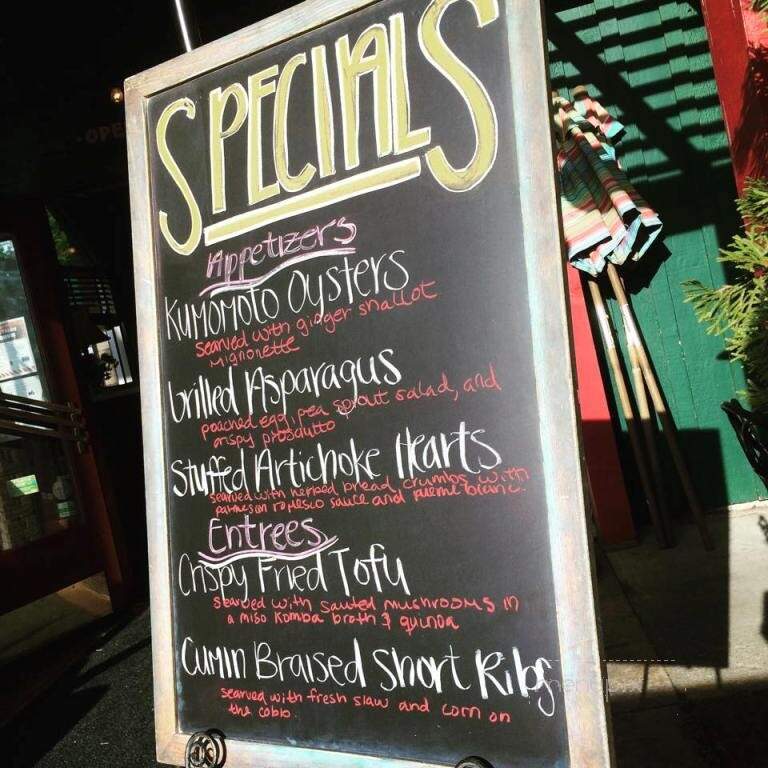 SPECIALS
Appetizers
Kumomoto Oysters
searved with ginger shallot
mignonette
Grilled Asparagus
poached egg, pea sprout salad, and
crispy prosciutto
Stuffed Artichoke Hearts
searved with herbed bread crumbs with
parmesan romesco sauce and
Entrees
Crispy Fried Tofu
searved with sauted mushrooms in
a miso Komba broth & quinoa
Cumin Braised Short Ribs
searved with fresh slaw and corn on
the cobb.